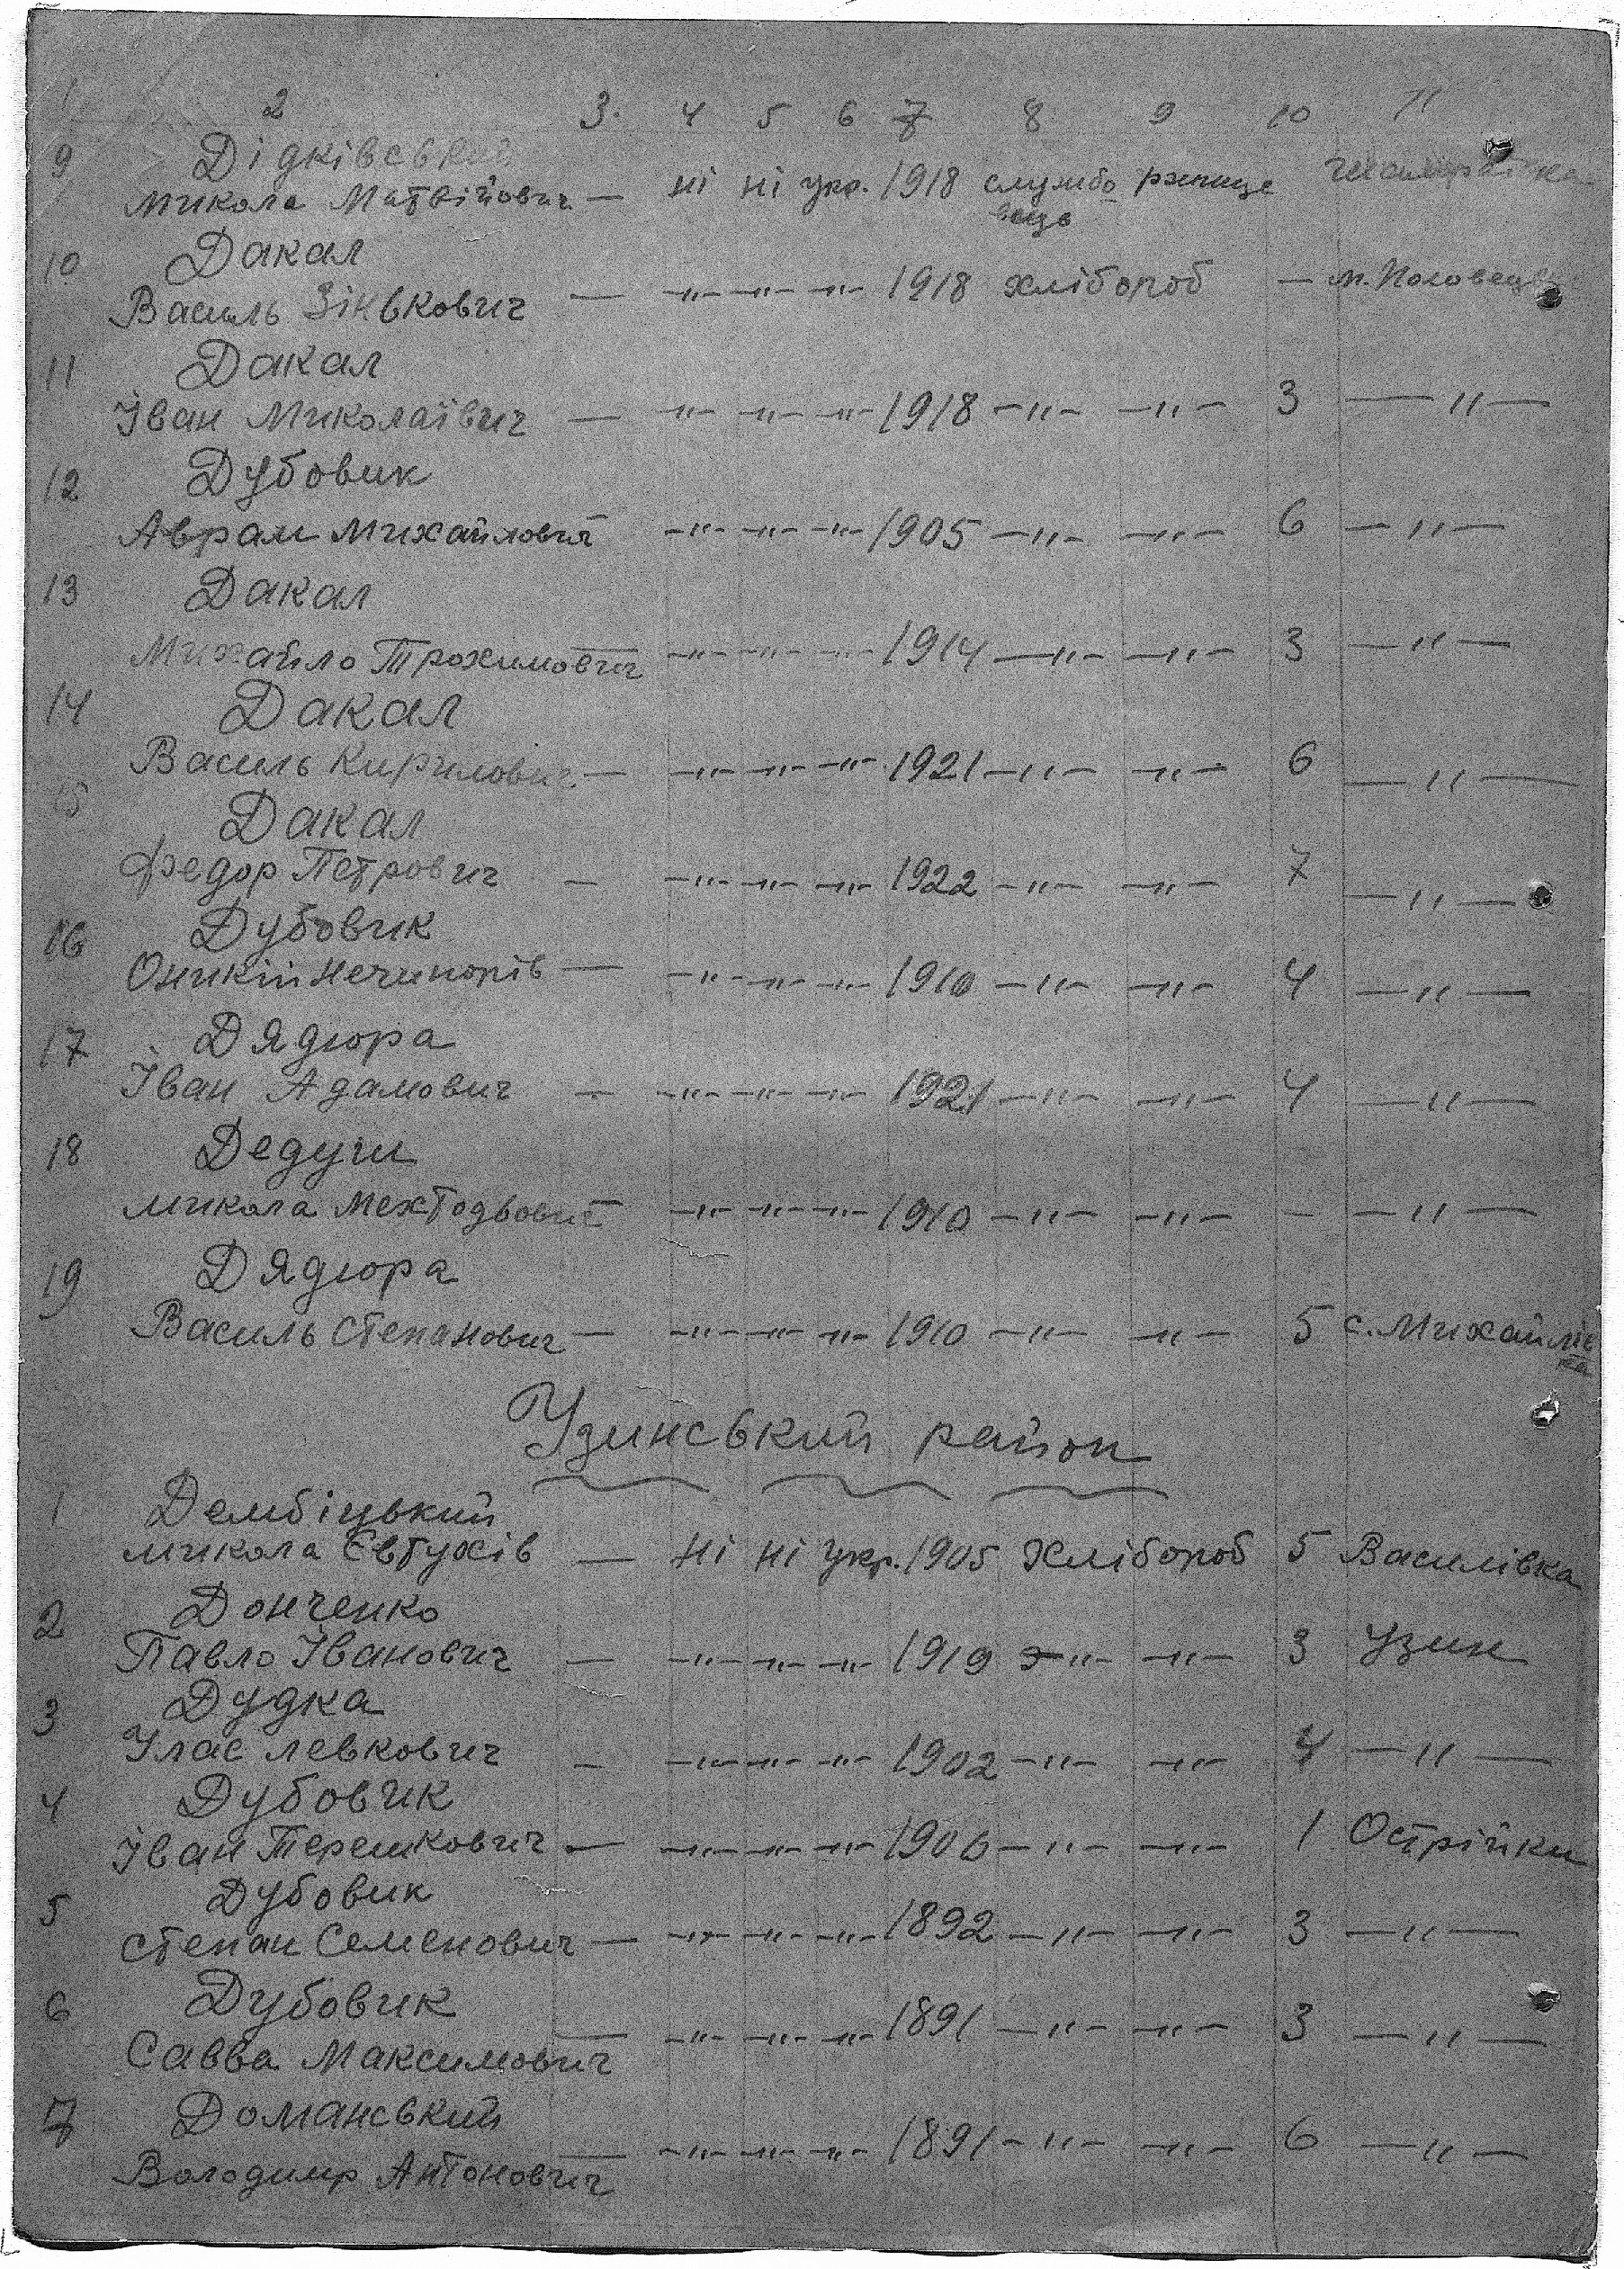 1 2 3. 4 5 6 7 8 9 10 11
9 Дідківський
Микола Матвійович — ні ні укр. 1918 службо
вець
10 Дакал
Василь Зінькович — —"— —"— —"— 1918 хлібороб — м. Половецьк
11 Дакал
Іван Миколаївич — —"— —"— —"— 1918 —"— —"— 3 —"—
12 Дубовик
Аврам Михайлович —"— —"— —"— 1905 —"— —"— 6 —"—
13 Дакал
Михайло Трохимович —"— —"— —"— 1914 —"— —"— 3 —"—
14 Дакал
Василь Кирилович — —"— —"— —"— 1921 —"— —"— 6 —"—
15 Дакал
Федор Петрович — —"— —"— —"— 1922 —"— —"— 7 —"—
16 Дубовик
Оникій Нечипорів — —"— —"— —"— 1910 —"— —"— 4 —"—
17 Дядюра
Іван Адамович — —"— —"— —"— 1921 —"— —"— 4 —"—
18 Дедучи
Микола —"— —"— —"— 1910 —"— —"— — —"—
19 Дядюра
Василь Степанович — —"— —"— —"— 1910 —"— —"— 5 с. Михайлів
ка
Узинський район
1 Дембіцький
Микола Євтухів — ні ні укр. 1905 Хлібороб 5 Василівка
2 Донченко
Павло Іванович — —"— —"— —"— 1919 —"— —"— 3 Узин
3 Дудка
Улас Левкович — —"— —"— —"— 1902 —"— —"— 4 —"—
4 Дубовик
Іван Терешкович — —"— —"— —"— 1906 —"— —"— 1 Острійки
5 Дубовик
Степан Семенович — —"— —"— —"— 1892 —"— —"— 3 —"—
6 Дубовик
Савва Максимович — —"— —"— —"— 1891 —"— —"— 3 —"—
7 Доманський
Володимр Антонович — —"— —"— —"— 1891 —"— —"— 6 —"—